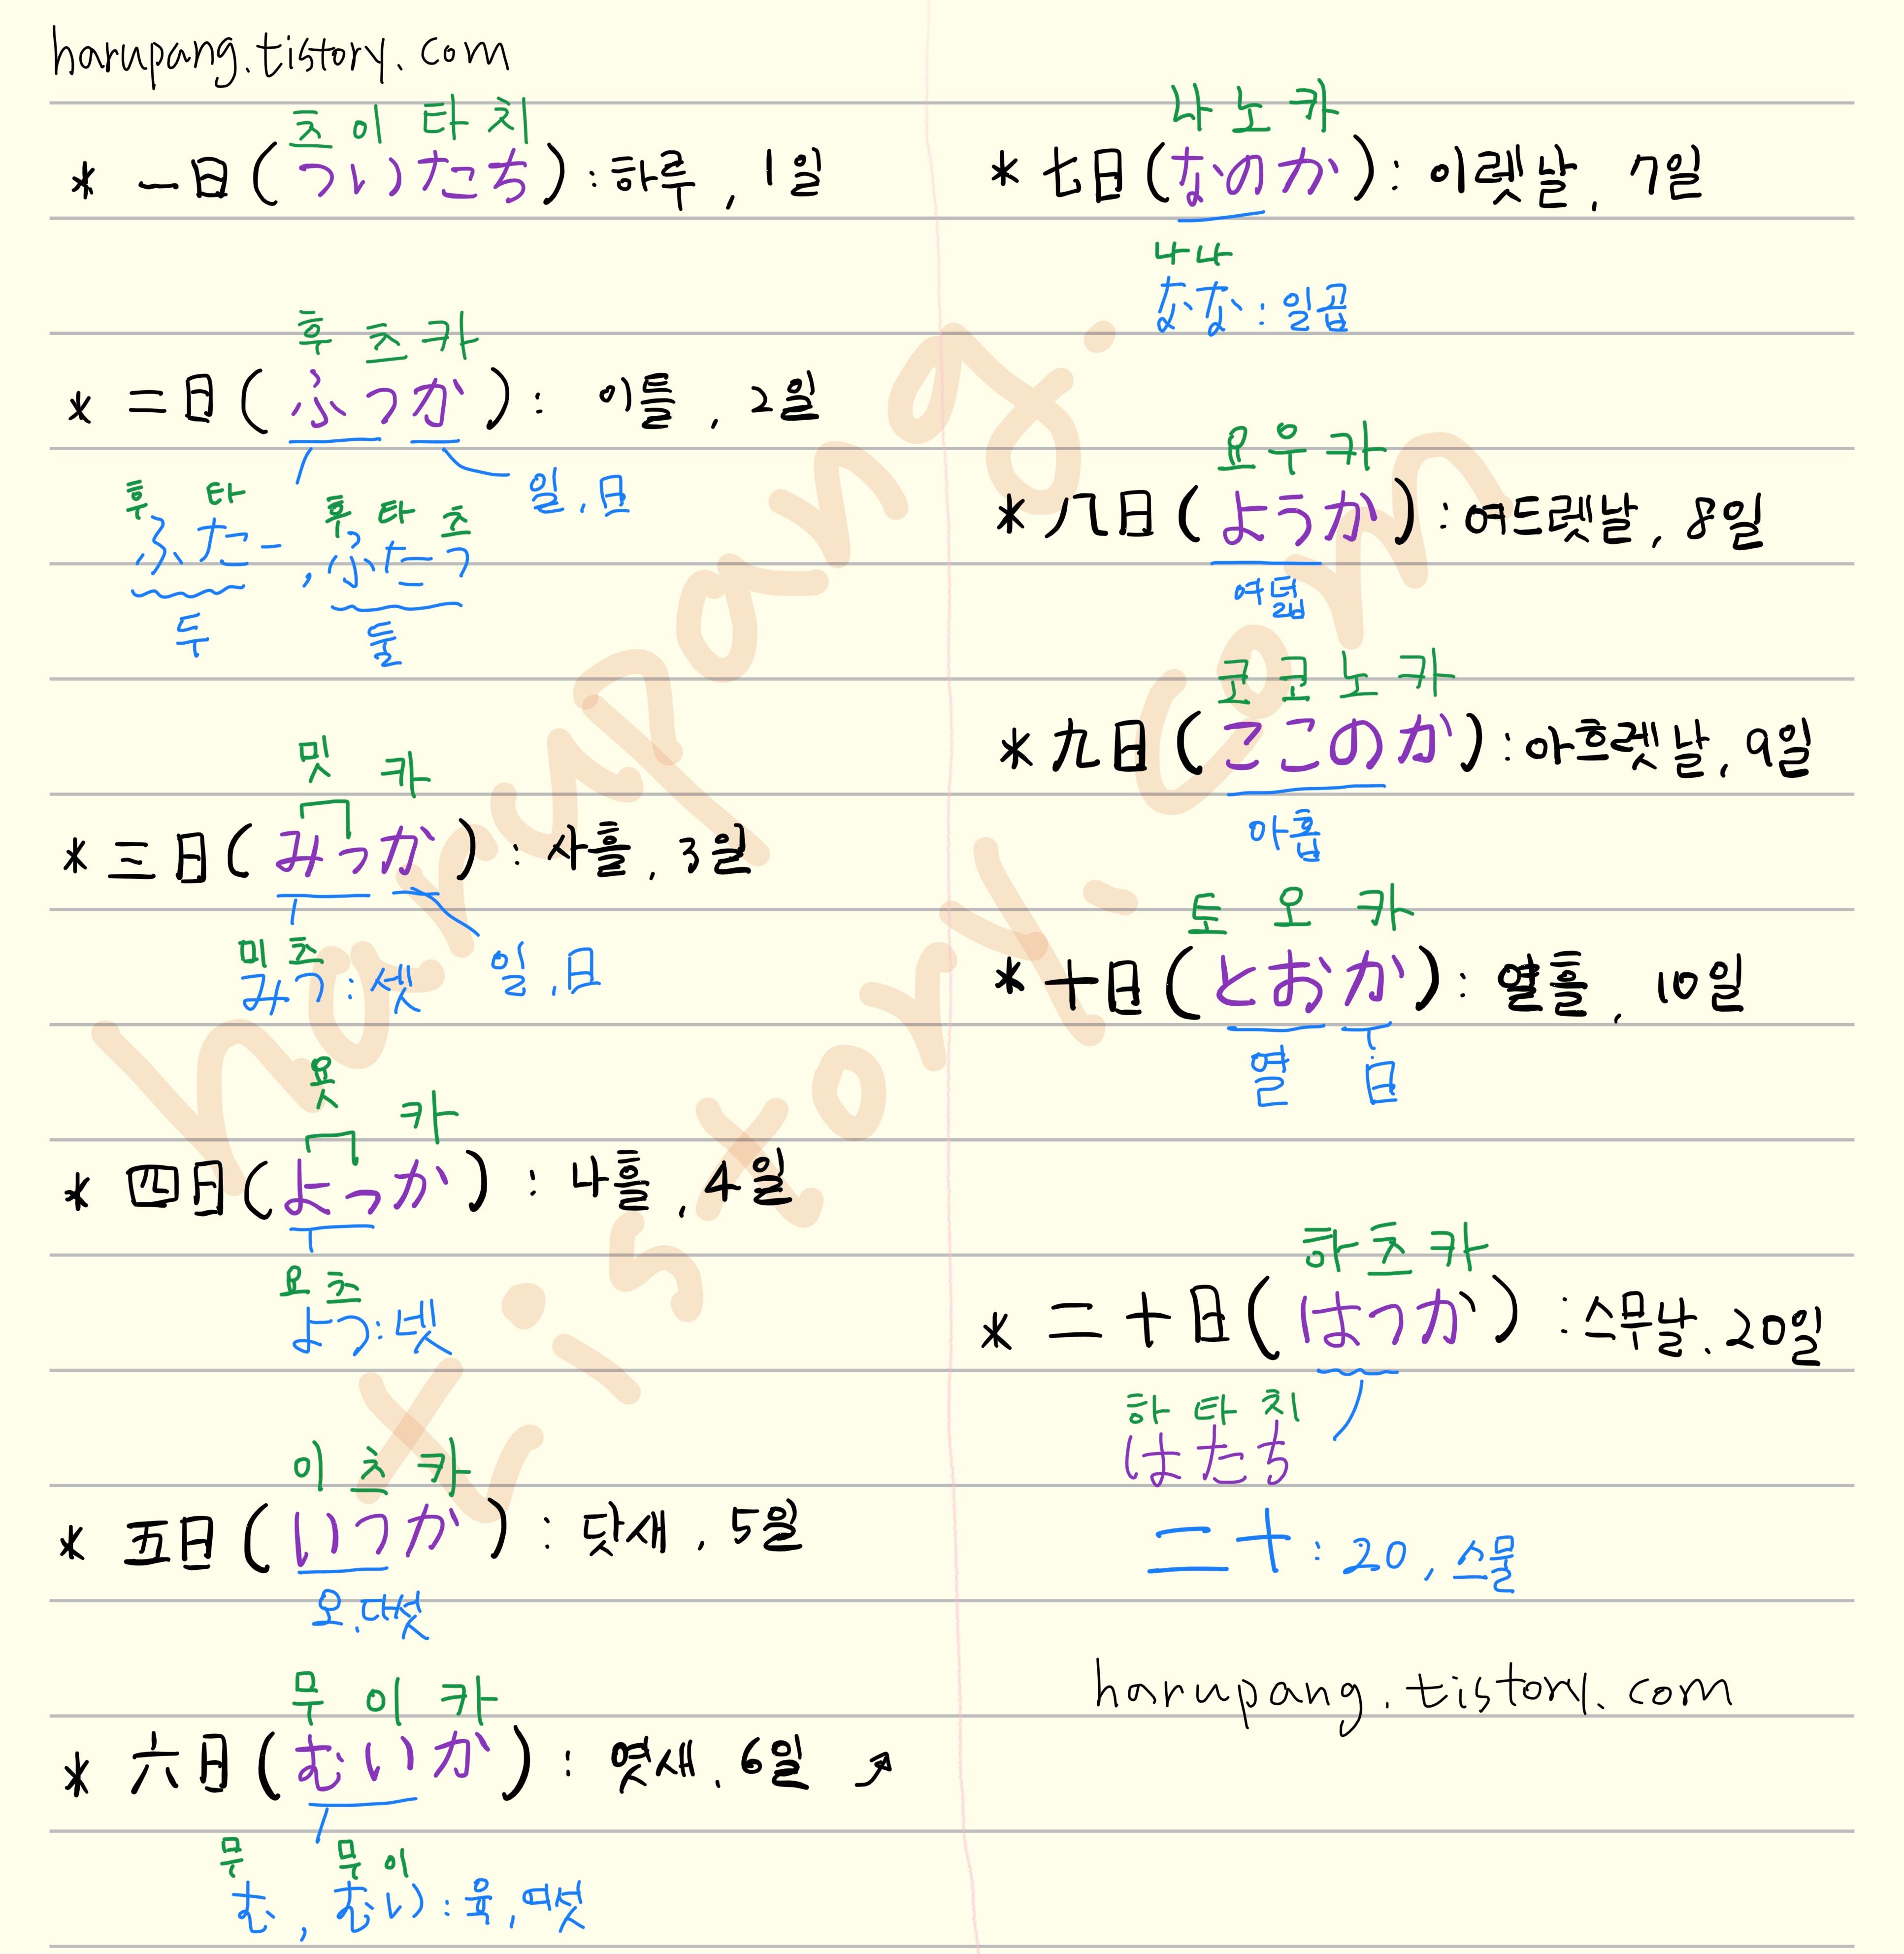 harupang.tistory.com
츠 이 타 치
* 一日(ついたち):하루, 1일
후 츠 카
* 二日(ふつか): 이틀, 2일
일, 日
후 타 후 타 츠
ふた-, ふたつ
두 둘
밋 카
* 三日(みっか): 사흘, 3일
미 츠
みつ:셋 일, 日
욧 카
* 四日(よっか): 나흘, 4일
요 츠
よつ:넷
이 츠 카
* 五日(いつか): 닷새, 5일
오, 다섯
무 이 카
* 六日(むいか): 엿새, 6일
무 무 이
む, むい:육, 여섯
나 노 카
* 七日(なのか): 이렛날, 7일
나나
なな:일곱
요 우 카
* 八日(ようか):여드렛날, 8일
여덟
코 코 노 카
* 九日(ここのか):아흐렛날, 9일
아홉
토 오 카
* 十日(とおか): 열흘, 10일
열 日
하 츠 카
* 二十日(はつか):스무날, 20일
하 타 치
はたち
二十: 20, 스물
harupang.tistory.com
harupang.
tistory.com